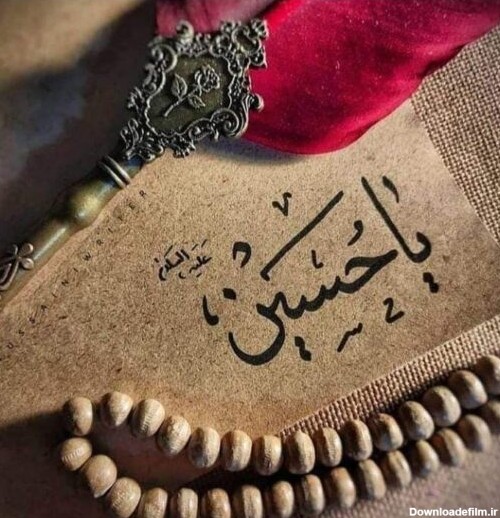 يا حسين
عليه السلام
HUSSAINIWRITER
Downloadefilm.ir